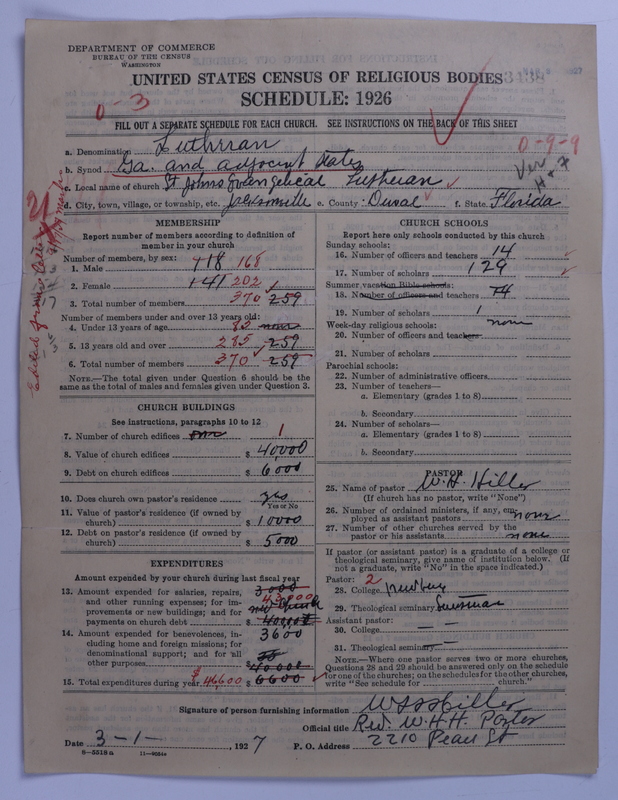 DEPARTMENT OF COMMERCE
BUREAU OF THE CENSUS
WASHINGTON
UNITED STATES CENSUS OF RELIGIOUS BODIES 3438
SCHEDULE: 1926
0-3
FILL OUT A SEPARATE SCHEDULE FOR EACH CHURCH. SEE INSTRUCTIONS ON THE BACK OF THIS SHEET
0-9-9
a. Denomination Lutheran
b. Synod Ga. and adjacent States
Ver
c. Local name of church St Johns Evangelical Lutheran
d. City, town, village, or township, etc. Jacksonville e. County: Duval f. State: Florida
MEMBERSHIP
Report number of members according to definition of
member in your church
Number of members, by sex:
1. Male 118 168
2. Female 141 202
3. Total number of members 370 259
Number of members under and over 13 years old:
4. Under 13 years of age 85 none
5. 13 years old and over 285 259
6. Total number of members 370 259
NOTE.—The total given under Question 6 should be the
same as the total of males and females given under Question 3.
CHURCH BUILDINGS
See instructions, paragraphs 10 to 12
7. Number of church edifices one 1
8. Value of church edifices $ 40,000
9. Debt on church edifices $ 6000
10. Does church own pastor's residence yes
Yes or No
11. Value of pastor's residence (if owned by
church) $ 10000
12. Debt on pastor's residence (if owned by
church) $ 5000
EXPENDITURES
Amount expended by your church during last fiscal year
13. Amount expended for salaries, repairs, 3000
and other running expenses; for im- 43,000
provements or new buildings; and for
payments on church debt $ 40000
14. Amount expended for benevolences, in- 3600
cluding home and foreign missions; for
denominational support; and for all
other purposes 40000
15. Total expenditures during year $ 46,600 $ 6600
CHURCH SCHOOLS
Report here only schools conducted by this church
Sunday schools:
16. Number of officers and teachers 14
17. Number of scholars 129
Summer vacation Bible schools:
18. Number of officers and teachers 14
19. Number of scholars
Week-day religious schools: none
20. Number of officers and teachers
21. Number of scholars
Parochial schools:
22. Number of administrative officers
23. Number of teachers—
a. Elementary (grades 1 to 8)
b. Secondary
24. Number of scholars—
a. Elementary (grades 1 to 8)
b. Secondary
PASTOR
25. Name of pastor W.H. Hiller
(If church has no pastor, write "None")
26. Number of ordained ministers, if any, em-
ployed as assistant pastors none
27. Number of other churches served by the
pastor or his assistants none
If pastor (or assistant pastor) is a graduate of a college or
theological seminary, give name of institution below. (If
not a graduate, write "No" in the space indicated.)
Pastor: 2
28. College
29. Theological seminary
Assistant pastor:
30. College — —
31. Theological seminary — —
NOTE.—Where one pastor serves two or more churches,
Questions 28 and 29 should be answered only on the schedule
for one of the churches; on the schedules for the other churches,
write "See schedule for church."
Signature of person furnishing information
Official title Rev. W.H.H. Pastor
Date 3-1-, 1927 P. O. Address 2210 Pearl St
8—5518a 11—9084a